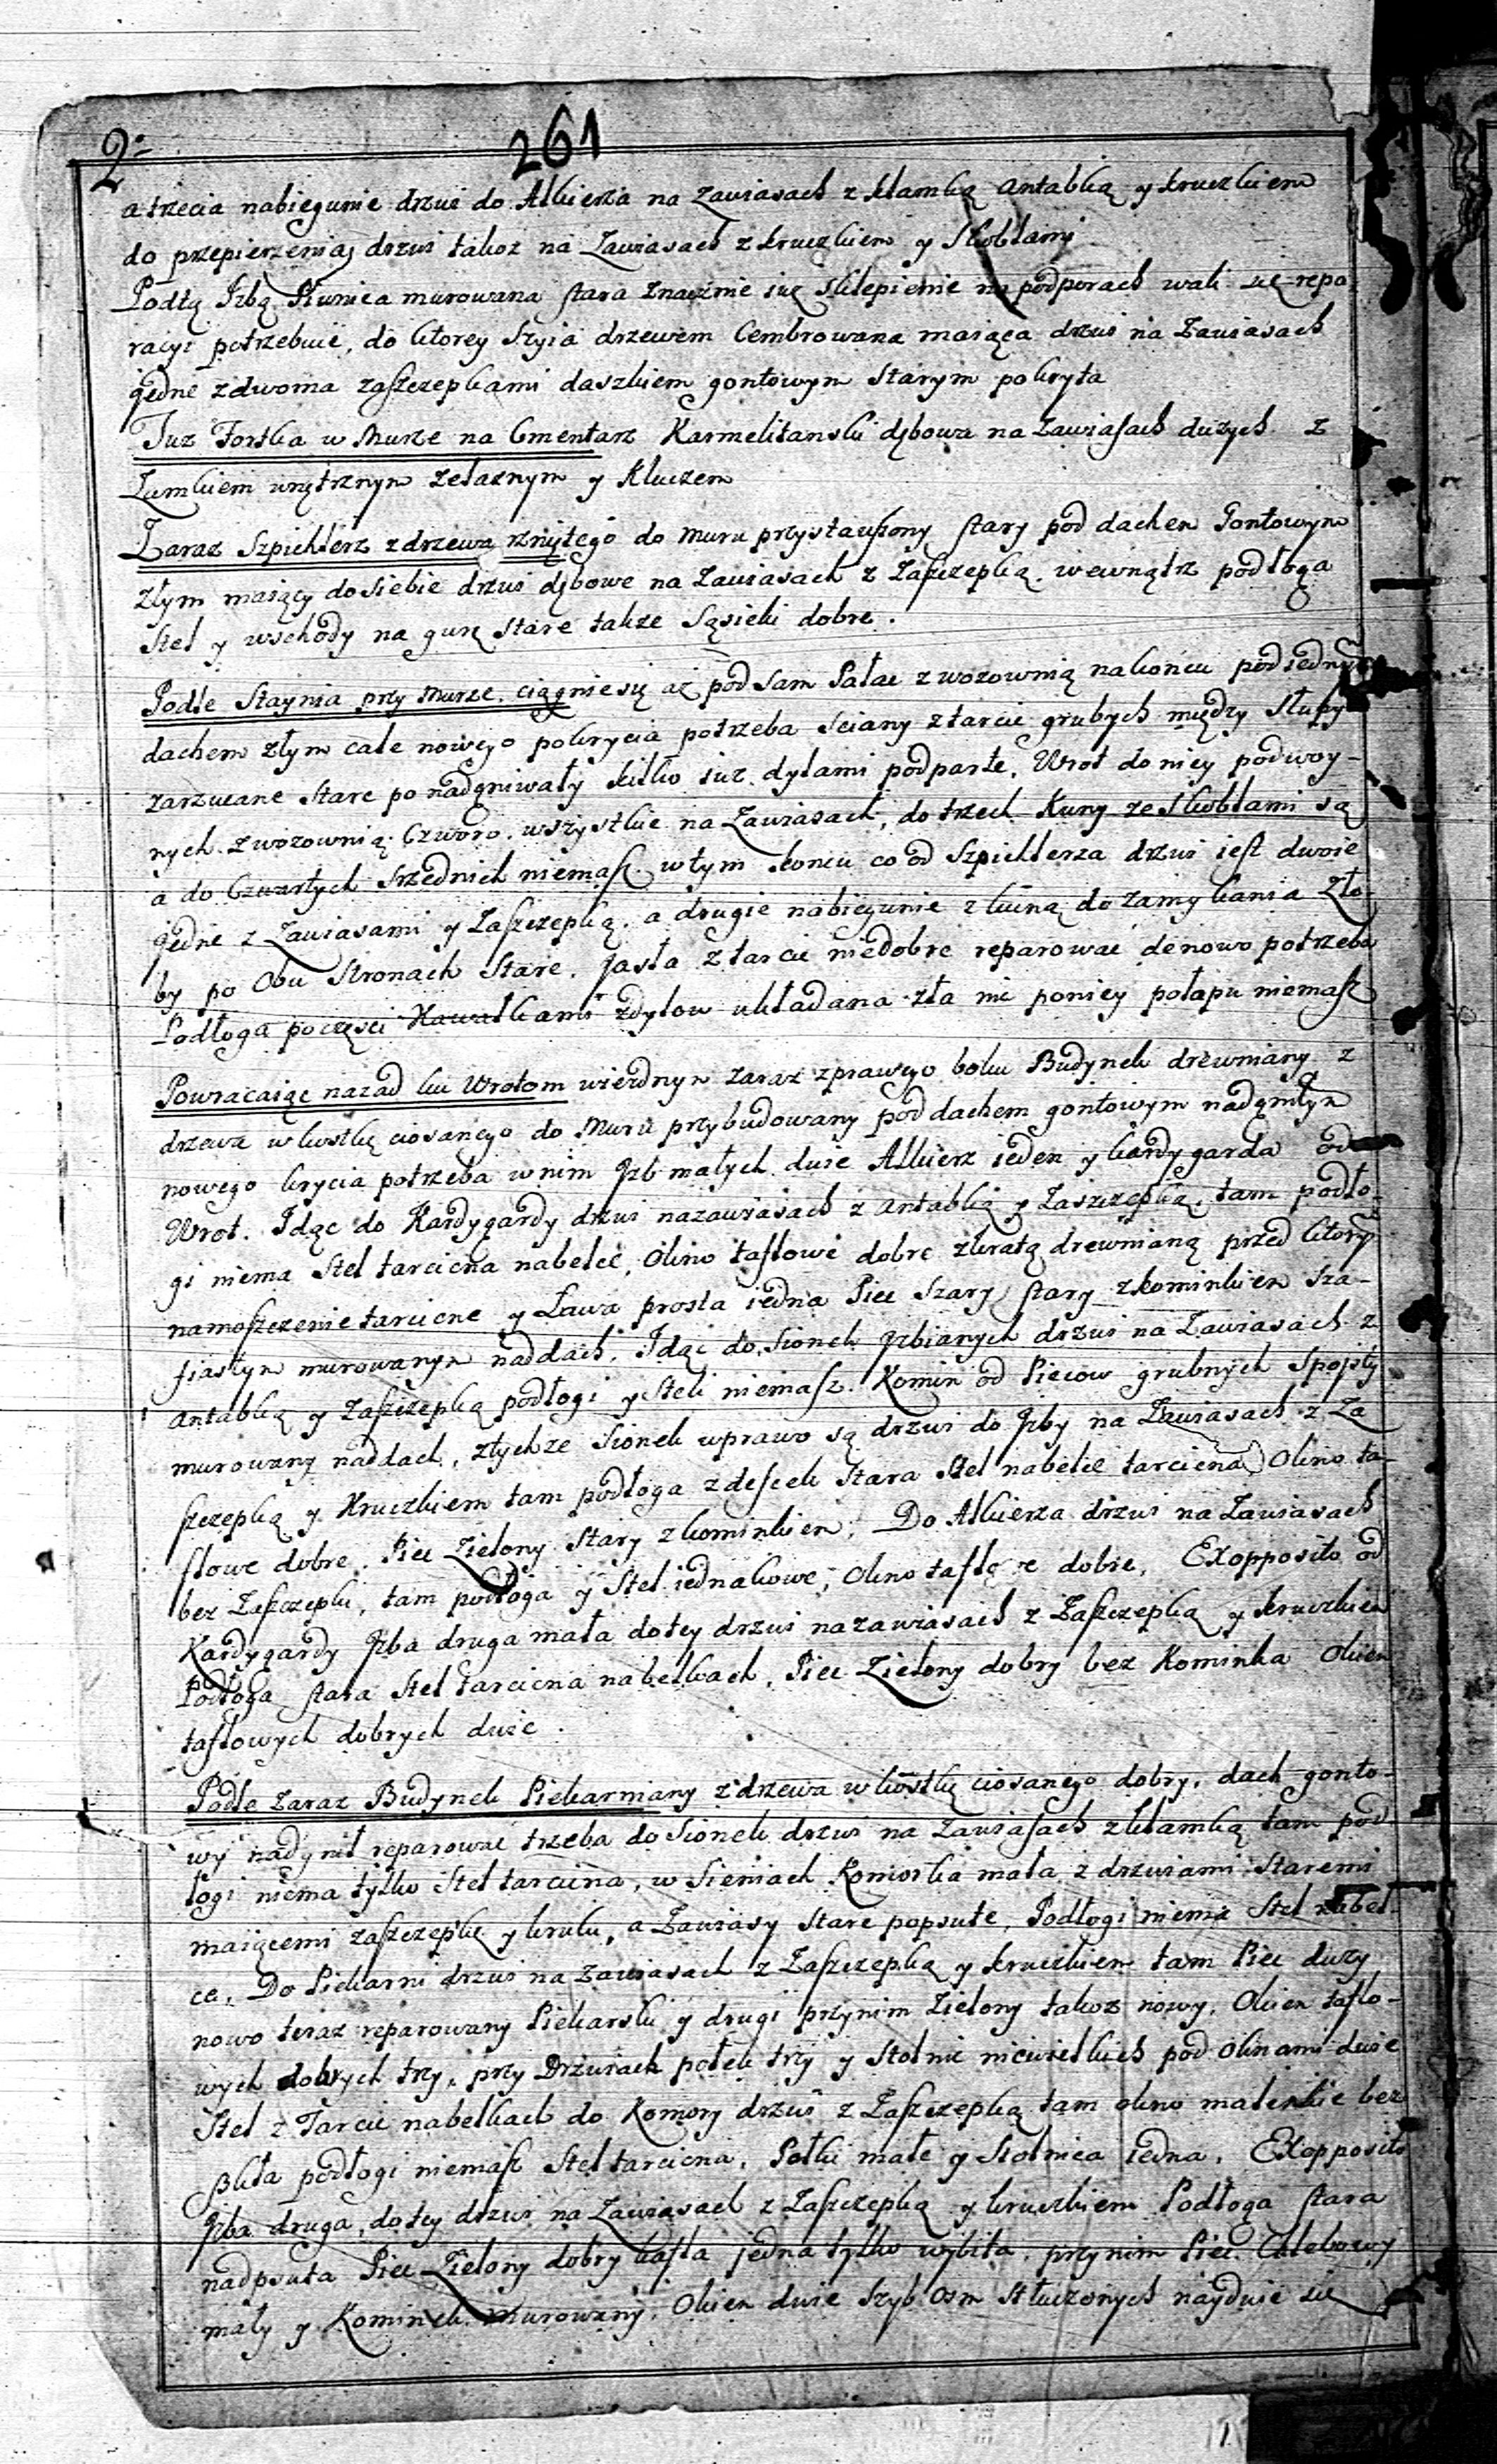 2°
261
a trzecia nabiegunie drzwi do Alkierza na Zawiasach z klamką antabką y kruczkiem
do przepierzenia drzwi takoż na Zawiasach z kruczkiem y Skoblami
Podtą Izbą Piwnica murowana stara znacznie się sklepienie na podporach wali się repa
racyi potrzebuie, do ktorey Szyia drzewem Cembrowana maiąca drzwi na Zawiasach
jedne zdwoma zaszczepkami daszkiem gontowym Starym pokryta
Tuz Fortka w Murze na Cmentarz Karmelitanski dębowa na Zawiasach dużych z
Zamkiem wnętrznym żelaznym y Kluczem
Zaraz Szpichlerz z drzewa rzniętego do muru przystawiony stary pod dachem Gontowym
złym maiący do siebie drzwi dębowe na Zawiasach z Zaszczepką. wewnątrz podłoga
Stel y wschody na gurę stare takze Sąsieki dobre.
Podle Staynia przy Murze ciągnie się aż pod Sam Pałac z wozownią na końcu pod iednym
dachem złym cale nowego pokrycia potrzeba Sciany z tarcic grubych między Słupy
zarzucane Stare ponadgniwały kilko iuz dylami podparte, Wrot do niey podwoy-
nych z wozownią Czworo. wszystkie na Zawiasach, do trzech Kuny ze Skoblami są
a do Czwartych Srzednich niemasz. w tym końcu co od Szpichlerza drzwi iest dwoie
jedne z Zawiasami y Zaszczepką. a drugie nabiegunie z kuną do zamykania Zło-
by po Obu Stronach Stare. Jasła z tarcic niedobre reparować denowo potrzeba
Podłoga poczęsci Kawałkami zdylow układana zła nic poniey połapu niemasz
Powracaiąc nazad ku Wrotom wiezdnym zaraz zprawego boku Budynek drewniany z
drzewa w kostkę ciosanego do Muru przybudowany pod dachem gontowym nadgniłym
nowego krycia potrzeba w nim Izb małych dwie Alkierz ieden y kardygarda od
Wrot. Idąc do Kardygardy drzwi nazawiasach z antabką y Zaszczepką, tam podło-
gi niema Stel tarcicna nabelce, Okno taflowe dobre zkratą drewnianą przed ktorym
namoszczenie tarcicne y Ława prosta iedna Piec Szary stary z kominkiem Sza-
fiastym murowanym naddach. Idąc do Sionek Izbianych drzwi na Zawiasach z
antabką y Zaszczepką podłogi y Steli niemasz. Komin od Piecow grubnych Spojsty
murowany naddach, ztychze Sionek wprawo są drzwi do Izby na Zawiasach z Za
szczepką y Kruczkiem tam podłoga z desek Stara Stel nabelce tarcicna Okno ta-
flowe dobre. Piec Zielony Stary z kominkiem, Do Alkierza drzwi na Zawiasach
bez Zaszczepki, tam podłoga y Stel iednakowe, Okno taflowe dobre, Exopposito od
Kardygardy Izba druga mała dotey drzwi nazawiasach z Zaszczepką y kruczkiem
Podłoga stara Stel tarcicna nabelkach, Piec Zielony dobry bez Kominka Okien
taflowych dobrych dwie.
Podle zaraz Budynek Piekarniany z drzewa w kostkę ciosanego dobry, dach gonto-
wy nadgnił reparować trzeba do Sionek drzwi na Zawiasach zklamką tam pod-
łogi niema tylko Stel tarcicna, w Sieniach Komorka mała z drzwiami Staremi
maiącemi zaszczepkę y kruk, a Zawiasy Stare popsute, Podłogi niema Stel nabel-
ce, Do Piekarni drzwi na Zawiasach z Zaszczepką y kruczkiem tam Piec duzy
nowo teraz reparowany Piekarski y drugi przynim Zielony takoz nowy, Okien taflo-
wych dobrych trzy, przy Drzwiach połek trzy y Stolnic niewielkich pod Oknami dwie
Stel z Tarcic nabelkach do Komory drzwi z Zaszczepką tam okno malenkie bez
podłogi niemasz Stel tarcicna, Połki małe y Stolnica iedna, Exopposito
Izba druga, dotey drzwi na Zawiasach z Zaszczepką y kruczkiem Podłoga stara
nadpsuta Piec Zielony dobry kafla jedna tylko wybita, przynim Piec Chlebowy
mały y Kominek Murowany, Okien dwie Szyb Osm Stłuczonych nayduie się